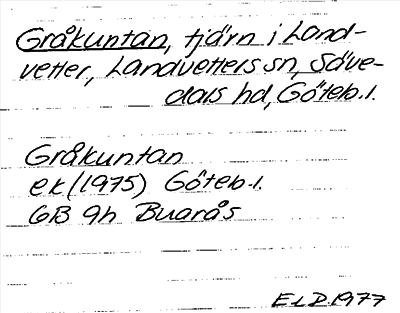 Gråkuntan, tjärn i Land-
vetter, Landvetters sn, Säve-
dals hd, Göteb. l.
Gråkuntan
ek (1975) Göteb. l.
6B 9h Buarås
ELD 1977